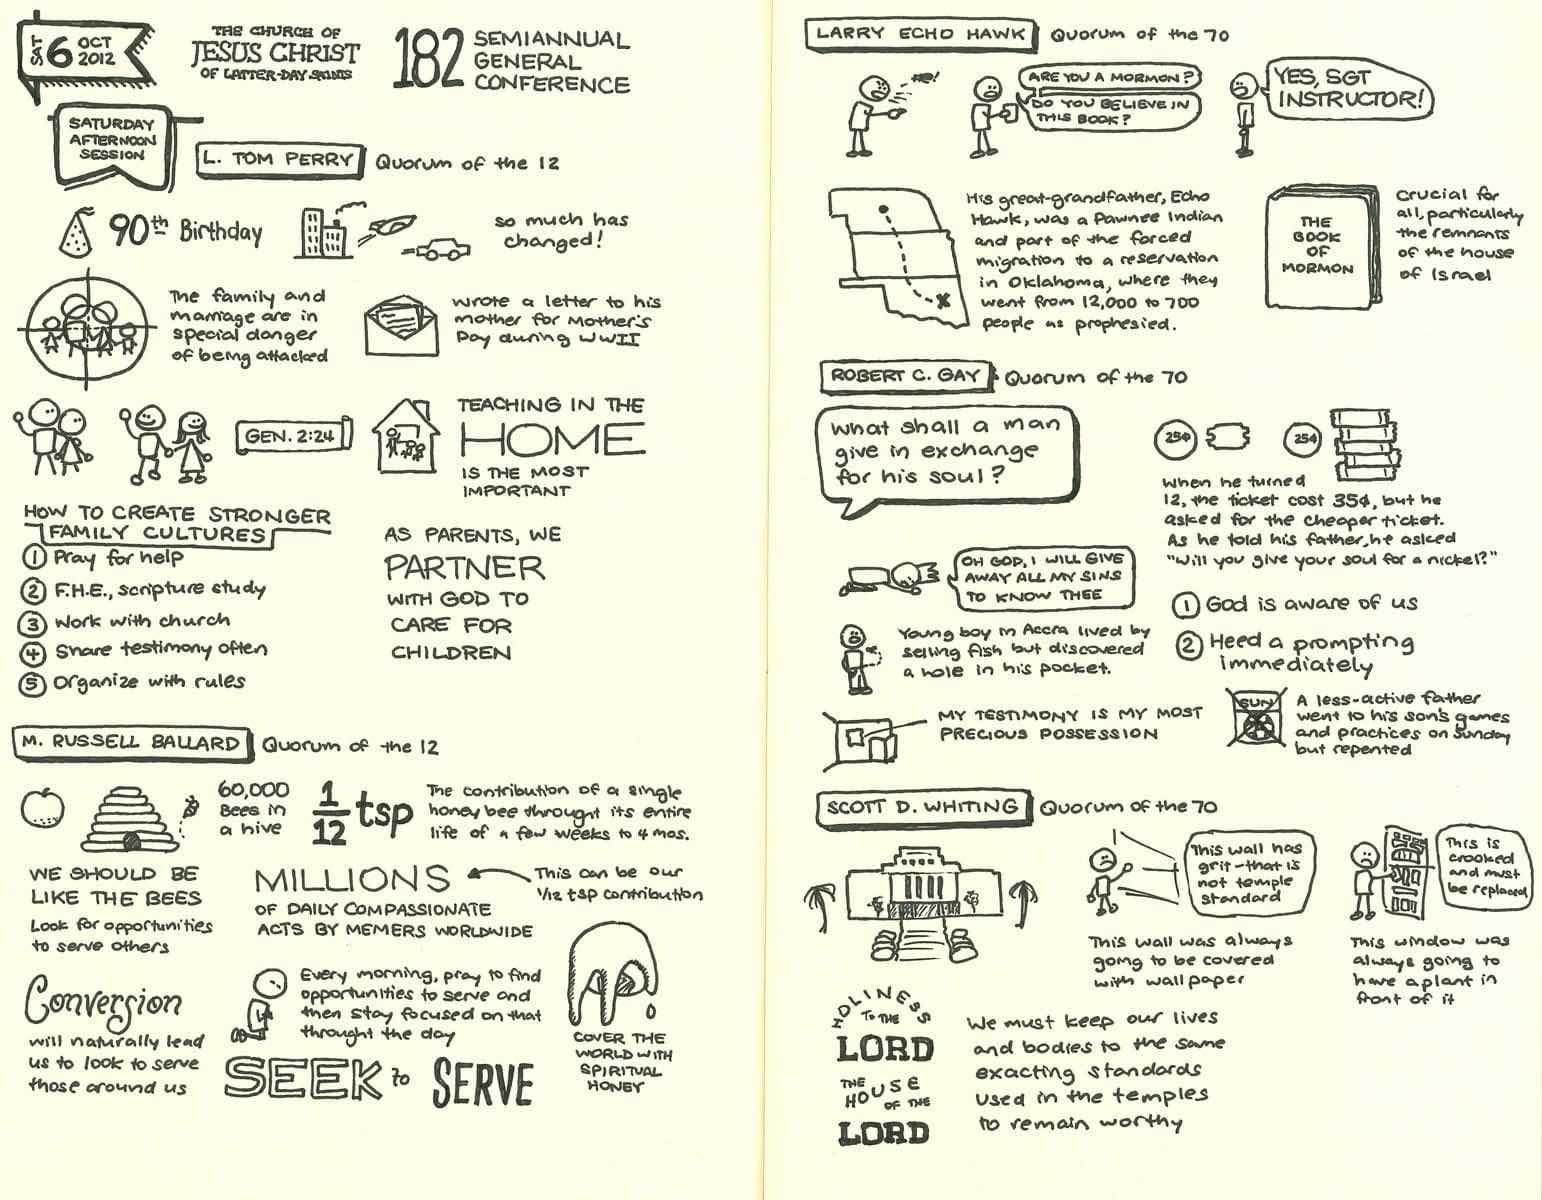 SAT 6 OCT 2012
THE CHURCH OF
JESUS CHRIST
OF LATTER-DAY SAINTS
182 SEMIANNUAL
GENERAL
CONFERENCE
SATURDAY
AFTERNOON
SESSION
L. TOM PERRY Quorum of the 12
90th Birthday
so much has
changed!
The family and
marriage are in
special danger
of being attacked
wrote a letter to his
mother for Mother's
Day during WWII
GEN. 2:24
TEACHING IN THE
HOME
IS THE MOST
IMPORTANT
HOW TO CREATE STRONGER
FAMILY CULTURES
1 Pray for help
2 F.H.E., scripture study
3 Work with church
4 Share testimony often
5 Organize with rules
AS PARENTS, WE
PARTNER
WITH GOD TO
CARE FOR
CHILDREN
M. RUSSELL BALLARD Quorum of the 12
60,000
Bees in
a hive
1/12 tsp
The contribution of a single
honey bee throught its entire
life of a few weeks to 4 mos.
WE SHOULD BE
LIKE THE BEES
Look for opportunities
to serve others
MILLIONS
OF DAILY COMPASSIONATE
ACTS BY MEMERS WORLDWIDE
This can be our
1/12 tsp contribution
Conversion
will naturally lead
us to look to serve
those around us
Every morning, pray to find
opportunities to serve and
then stay focused on that
throught the day
SEEK to SERVE
COVER THE
WORLD WITH
SPIRITUAL
HONEY
LARRY ECHO HAWK Quorum of the 70
#@!
ARE YOU A MORMON?
DO YOU BELIEVE IN
THIS BOOK?
YES, SGT
INSTRUCTOR!
His great-grandfather, Echo
Hawk, was a Pawnee Indian
and part of the forced
migration to a reservation
in Oklahoma, where they
went from 12,000 to 700
people as prophesied.
THE
BOOK
OF
MORMON
Crucial for
all, particularly
the remnants
of the house
of Israel
ROBERT C. GAY Quorum of the 70
What shall a man
give in exchange
for his soul?
25¢
25¢
When he turned
12, the ticket cost 35¢, but he
asked for the cheaper ticket.
As he told his father, he asked
"Will you give your soul for a nickel?"
OH GOD, I WILL GIVE
AWAY ALL MY SINS
TO KNOW THEE
1 God is aware of us
2 Heed a prompting
immediately
Young boy in Accra lived by
selling fish but discovered
a hole in his pocket.
MY TESTIMONY IS MY MOST
PRECIOUS POSSESSION
SUN
A less-active father
went to his son's games
and practices on Sunday
but repented
SCOTT D. WHITING Quorum of the 70
This wall has
grit-that is
not temple
standard
This is
crooked
and must
be replaced
This wall was always
going to be covered
with wall paper
This window was
always going to
have a plant in
front of it
HOLINESS
TO THE
LORD
THE
HOUSE
OF THE
LORD
We must keep our lives
and bodies to the same
exacting standards
used in the temples
to remain worthy